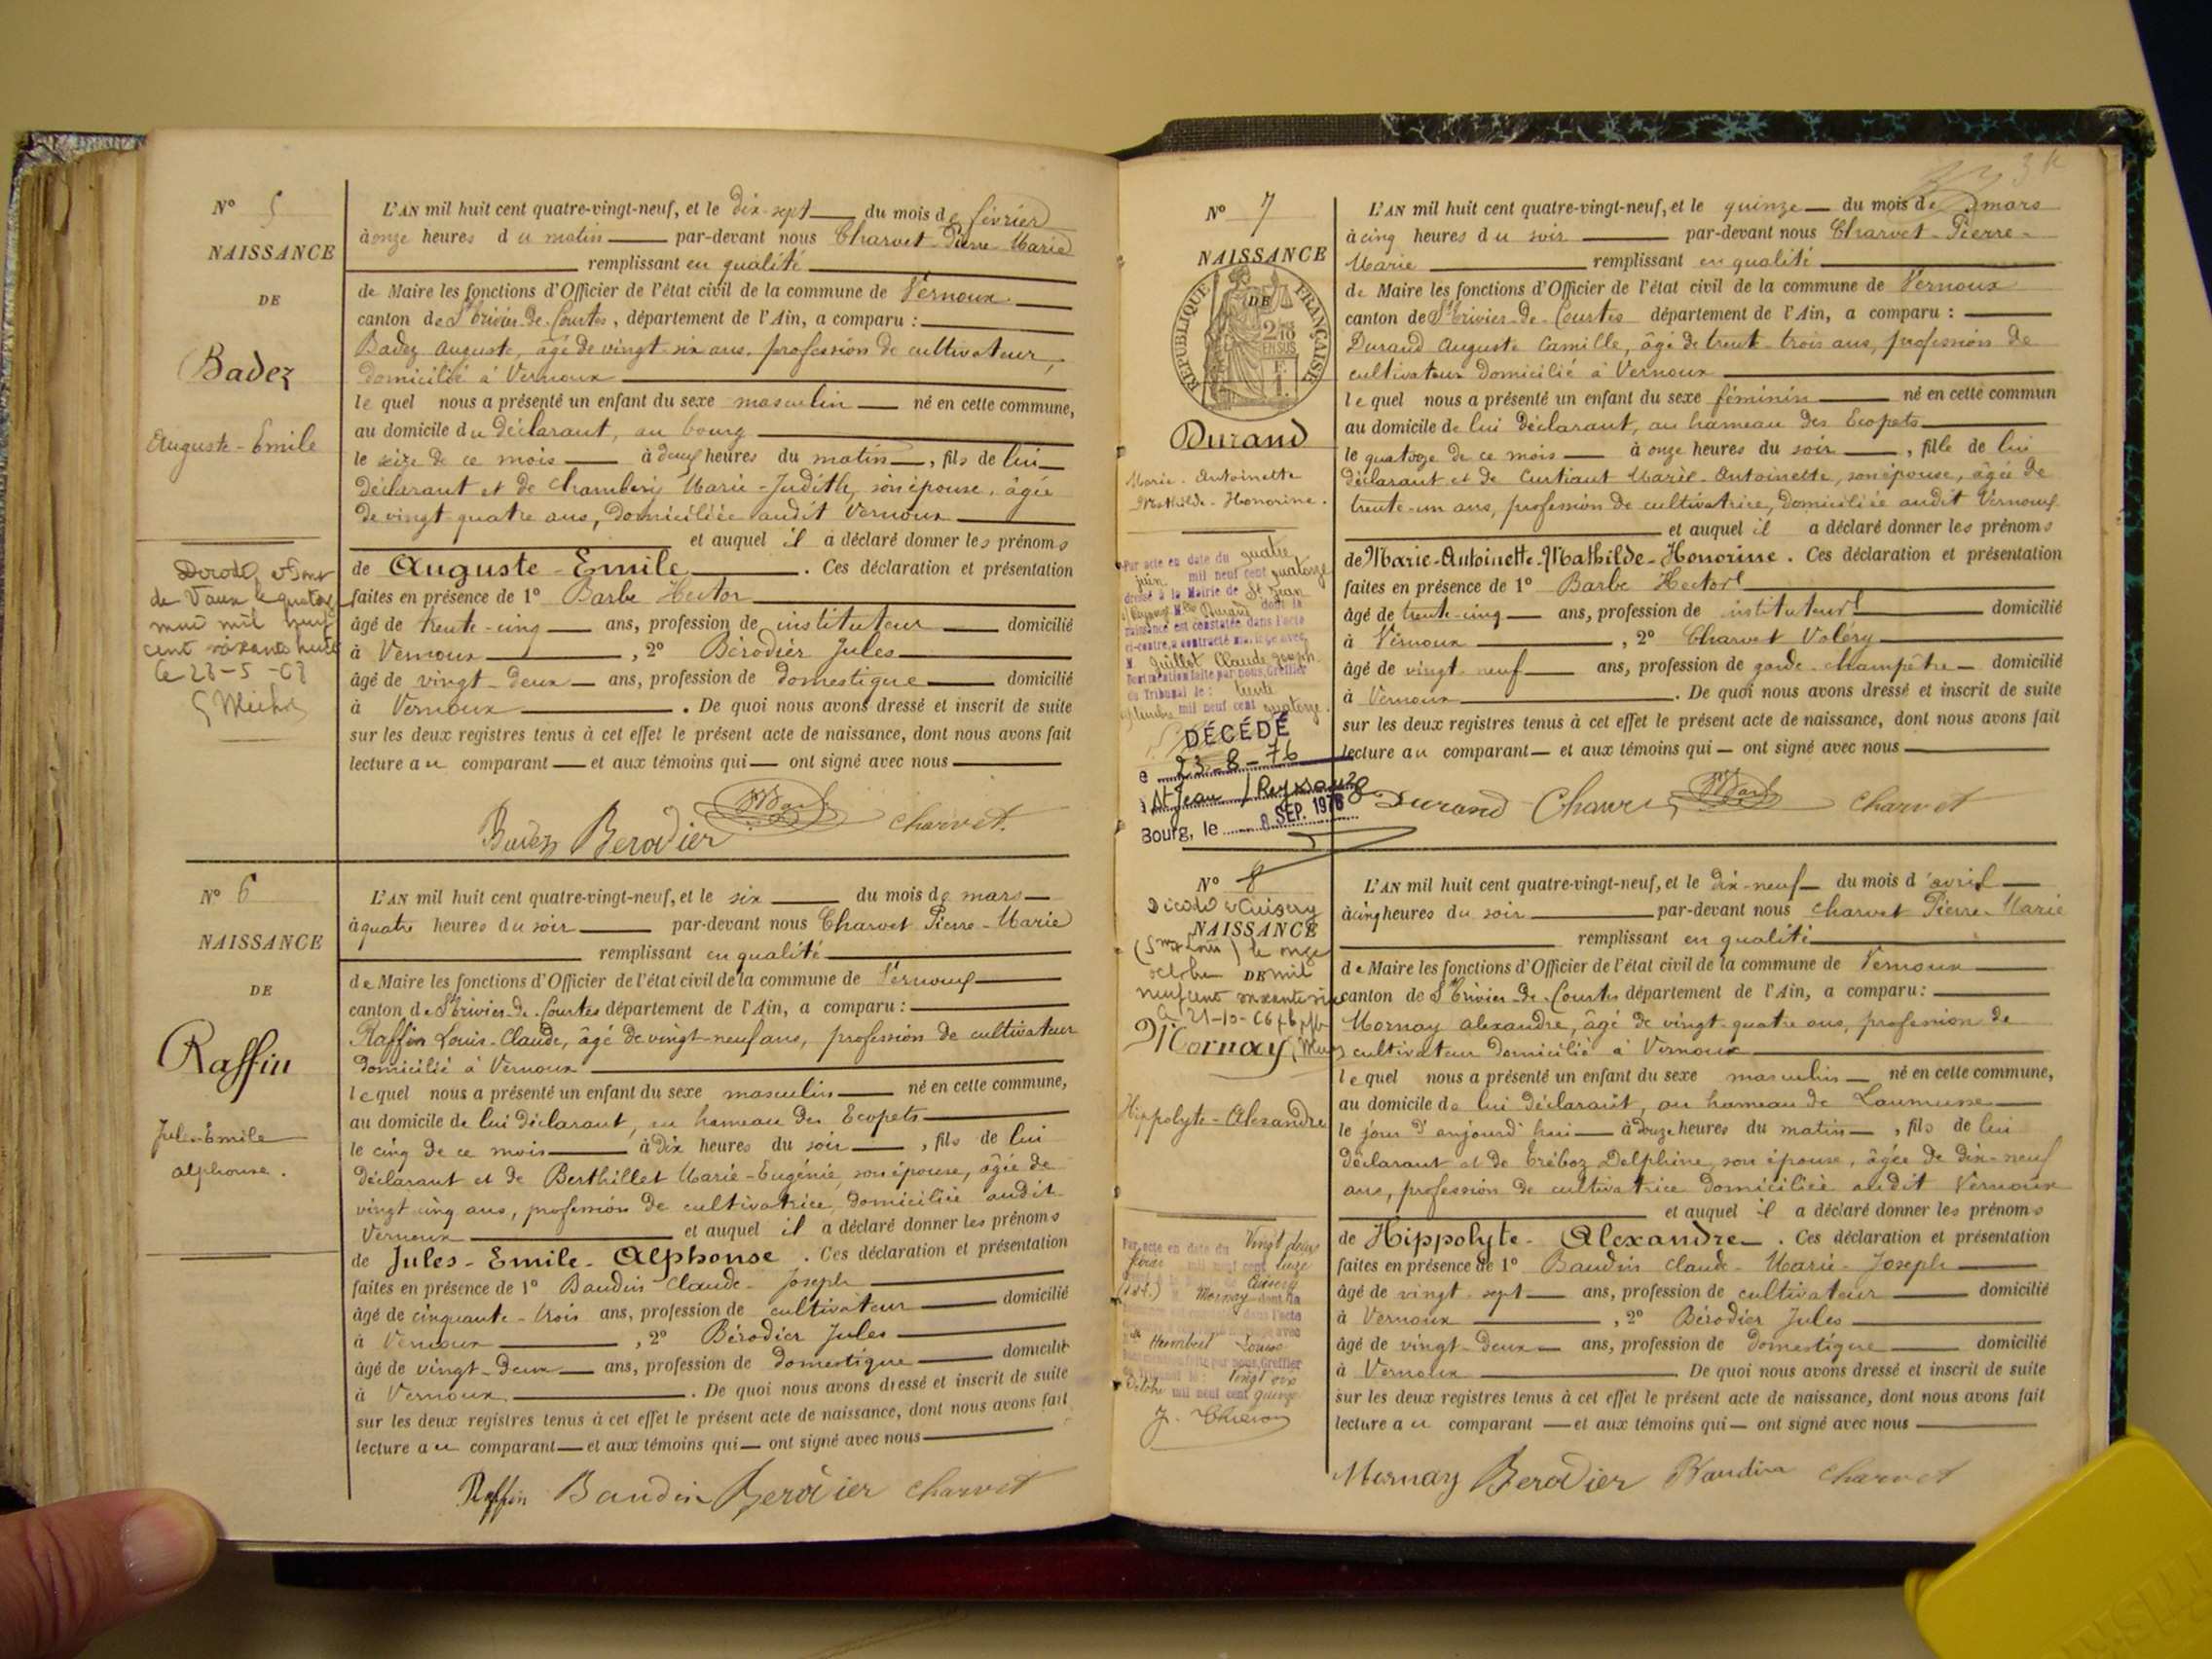 N° 5
NAISSANCE
DE
Badez
Auguste-Emile
de Vaux le quatre
mai mil neuf
cent soixante huit
L'AN mil huit cent quatre-vingt-neuf, et le dix-sept du mois de février
à onze heures du matin par-devant nous Charvet Pierre Marie
remplissant en qualité
de Maire les fonctions d'Officier de l'état civil de la commune de Vernoux
canton de St Trivier-de-Courtes, département de l'Ain, a comparu :
Badez Auguste, âgé de vingt-six ans, profession de cultivateur,
domicilié à Vernoux
lequel nous a présenté un enfant du sexe masculin né en cette commune,
au domicile du déclarant, au bourg
le seize de ce mois à deux heures du matin, fils de lui
déclarant et de Chambéry Marie-Judith, son épouse, âgée
de vingt quatre ans, domiciliée audit Vernoux
et auquel il a déclaré donner les prénoms
de Auguste-Emile. Ces déclaration et présentation
faites en présence de 1° Barbe Hector
âgé de trente-cinq ans, profession de instituteur domicilié
à Vernoux, 2° Bérodier Jules
âgé de vingt-deux ans, profession de domestique domicilié
à Vernoux. De quoi nous avons dressé et inscrit de suite
sur les deux registres tenus à cet effet le présent acte de naissance, dont nous avons fait
lecture au comparant et aux témoins qui ont signé avec nous
Badez Berodier Charvet.
N° 6
NAISSANCE
DE
Raffin
Jules-Emile
Alphonse.
L'AN mil huit cent quatre-vingt-neuf, et le six du mois de mars
à quatre heures du soir par-devant nous Charvet Pierre-Marie
remplissant en qualité
de Maire les fonctions d'Officier de l'état civil de la commune de Vernoux
canton de St Trivier-de-Courtes département de l'Ain, a comparu :
Raffin Louis-Claude, âgé de vingt-neuf ans, profession de cultivateur
domicilié à Vernoux
lequel nous a présenté un enfant du sexe masculin né en cette commune,
au domicile de lui déclarant, au hameau des Ecopets
le cinq de ce mois à dix heures du soir, fils de lui
déclarant et de Berthillet Marie-Eugénie, son épouse, âgée de
vingt cinq ans, profession de cultivatrice domiciliée audit
Vernoux et auquel il a déclaré donner les prénoms
de Jules-Emile-Alphonse. Ces déclaration et présentation
faites en présence de 1° Baudin Claude-Joseph
âgé de cinquante-trois ans, profession de cultivateur domicilié
à Vernoux, 2° Bérodier Jules
âgé de vingt-deux ans, profession de domestique domicilié
à Vernoux. De quoi nous avons dressé et inscrit de suite
sur les deux registres tenus à cet effet le présent acte de naissance, dont nous avons fait
lecture au comparant et aux témoins qui ont signé avec nous
Raffin Baudin Berodier Charvet
N° 7
NAISSANCE
DE
RÉPUBLIQUE FRANÇAISE
2/10 EN SUS
Durand
Marie-Antoinette
Mathilde-Honorine.
Par acte en date du quatre
juin mil neuf cent quatorze
dressé à la Mairie de St Jean
s/ Reyssouze Mlle Durand dont la
naissance est constatée dans l'acte
ci-contre, a contracté mariage avec
M. Guillet Claude Joseph.
Dont mention faite par nous, Greffier
du Tribunal le : trente
septembre mil neuf cent quatorze.
DÉCÉDÉ
e 23-8-76
à St Jean / Reyssouze
Bourg, le 8 SEP. 1976
L'AN mil huit cent quatre-vingt-neuf, et le quinze du mois de mars
à cinq heures du soir par-devant nous Charvet-Pierre-
Marie remplissant en qualité
de Maire les fonctions d'Officier de l'état civil de la commune de Vernoux
canton de St Trivier-de-Courtes département de l'Ain, a comparu :
Durand Auguste Camille, âgé de trente-trois ans, profession de
cultivateur domicilié à Vernoux
lequel nous a présenté un enfant du sexe féminin né en cette commun
au domicile de lui déclarant, au hameau des Ecopets
le quatorze de ce mois à onze heures du soir, fille de lui
déclarant et de Curtiaut Marie-Antoinette, son épouse, âgée de
trente-un ans, profession de cultivatrice, domiciliée audit Vernoux
et auquel il a déclaré donner les prénoms
de Marie-Antoinette-Mathilde-Honorine. Ces déclaration et présentation
faites en présence de 1° Barbe Hector
âgé de trente-cinq ans, profession de instituteur domicilié
à Vernoux, 2° Charvet Valéry
âgé de vingt-neuf ans, profession de garde-champêtre domicilié
à Vernoux. De quoi nous avons dressé et inscrit de suite
sur les deux registres tenus à cet effet le présent acte de naissance, dont nous avons fait
lecture au comparant et aux témoins qui ont signé avec nous
Durand Charvet Charvet
N° 8
Décédé à Cuisery
NAISSANCE
le onze
octobre DE mil
neuf cent soixante six
Mornay
Hippolyte-Alexandre
Par acte en date du Vingt deux
Cuisery
Mornay dont la
Humbert Louise
Dont mention faite par nous, Greffier
octobre mil neuf cent quinze
L'AN mil huit cent quatre-vingt-neuf, et le dix-neuf du mois d'avril
à cinq heures du soir par-devant nous Charvet Pierre-Marie
remplissant en qualité
de Maire les fonctions d'Officier de l'état civil de la commune de Vernoux
canton de St Trivier-de-Courtes département de l'Ain, a comparu :
Mornay Alexandre, âgé de vingt-quatre ans, profession de
cultivateur domicilié à Vernoux
lequel nous a présenté un enfant du sexe masculin né en cette commune,
au domicile de lui déclarant, au hameau de Laumusse
le jour d'aujourd'hui à douze heures du matin, fils de lui
déclarant et de Tréboz Delphine, son épouse, âgée de dix-neuf
ans, profession de cultivatrice domiciliée audit Vernoux
et auquel il a déclaré donner les prénoms
de Hippolyte-Alexandre. Ces déclaration et présentation
faites en présence de 1° Baudin Claude-Marie-Joseph
âgé de vingt-sept ans, profession de cultivateur domicilié
à Vernoux, 2° Bérodier Jules
âgé de vingt-deux ans, profession de domestique domicilié
à Vernoux De quoi nous avons dressé et inscrit de suite
sur les deux registres tenus à cet effet le présent acte de naissance, dont nous avons fait
lecture au comparant et aux témoins qui ont signé avec nous
Mornay Berodier Baudin Charvet